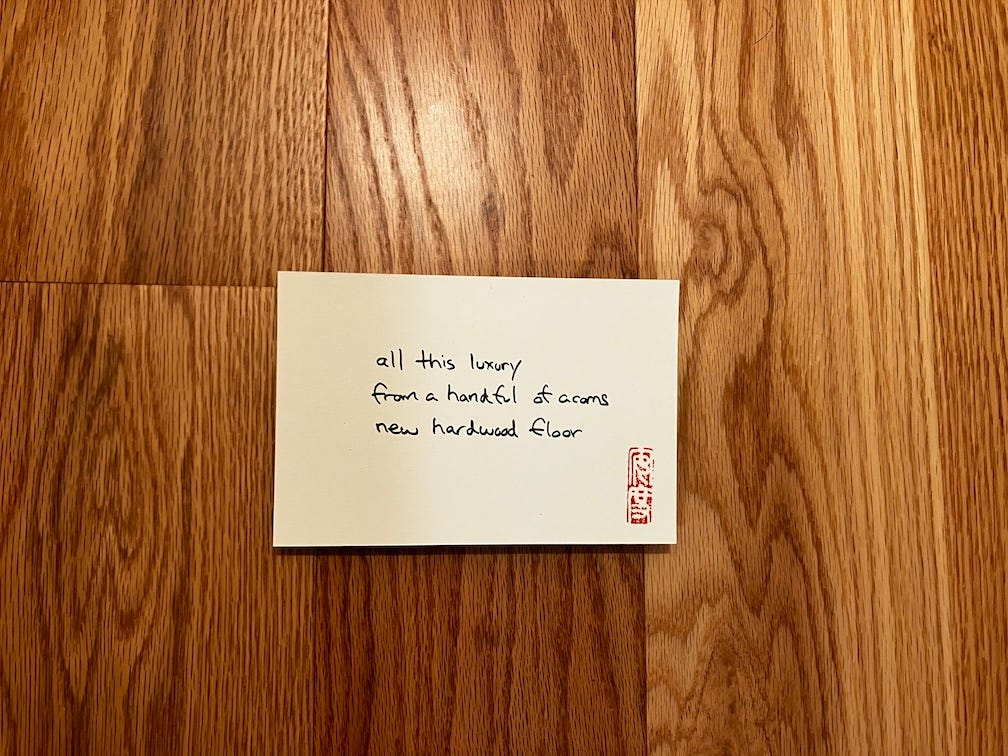 all this luxury
from a handful of acorns
new hardwood floor